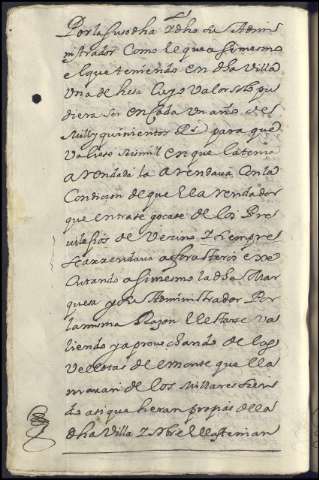 Por la suso dha Y dho su Admi
nistrador Como le que asimesmo
el que teniendo en dha Villa
Una dehesa Cuyo Valor solo pu
diera ser en Cada Un año de
Mill y quinientos Rs para que
Valiese seismil en que la tenia
arendada la arendava Con la
Condicion de que el la rendador
que entrase gocase de los Pre
vilesios de Vecino Y siempre
se arrendava a forasteros e xe
Cutando asimesmo la dha Mar
quesa y su Administrador Por
la misma Raçon llestarse va
liendo y aprovechando de las
Vellotas de el monte que lla
mavan de los Millares sien
do asi que heran propias de lla
dha Villa Y Nos ellas tenian